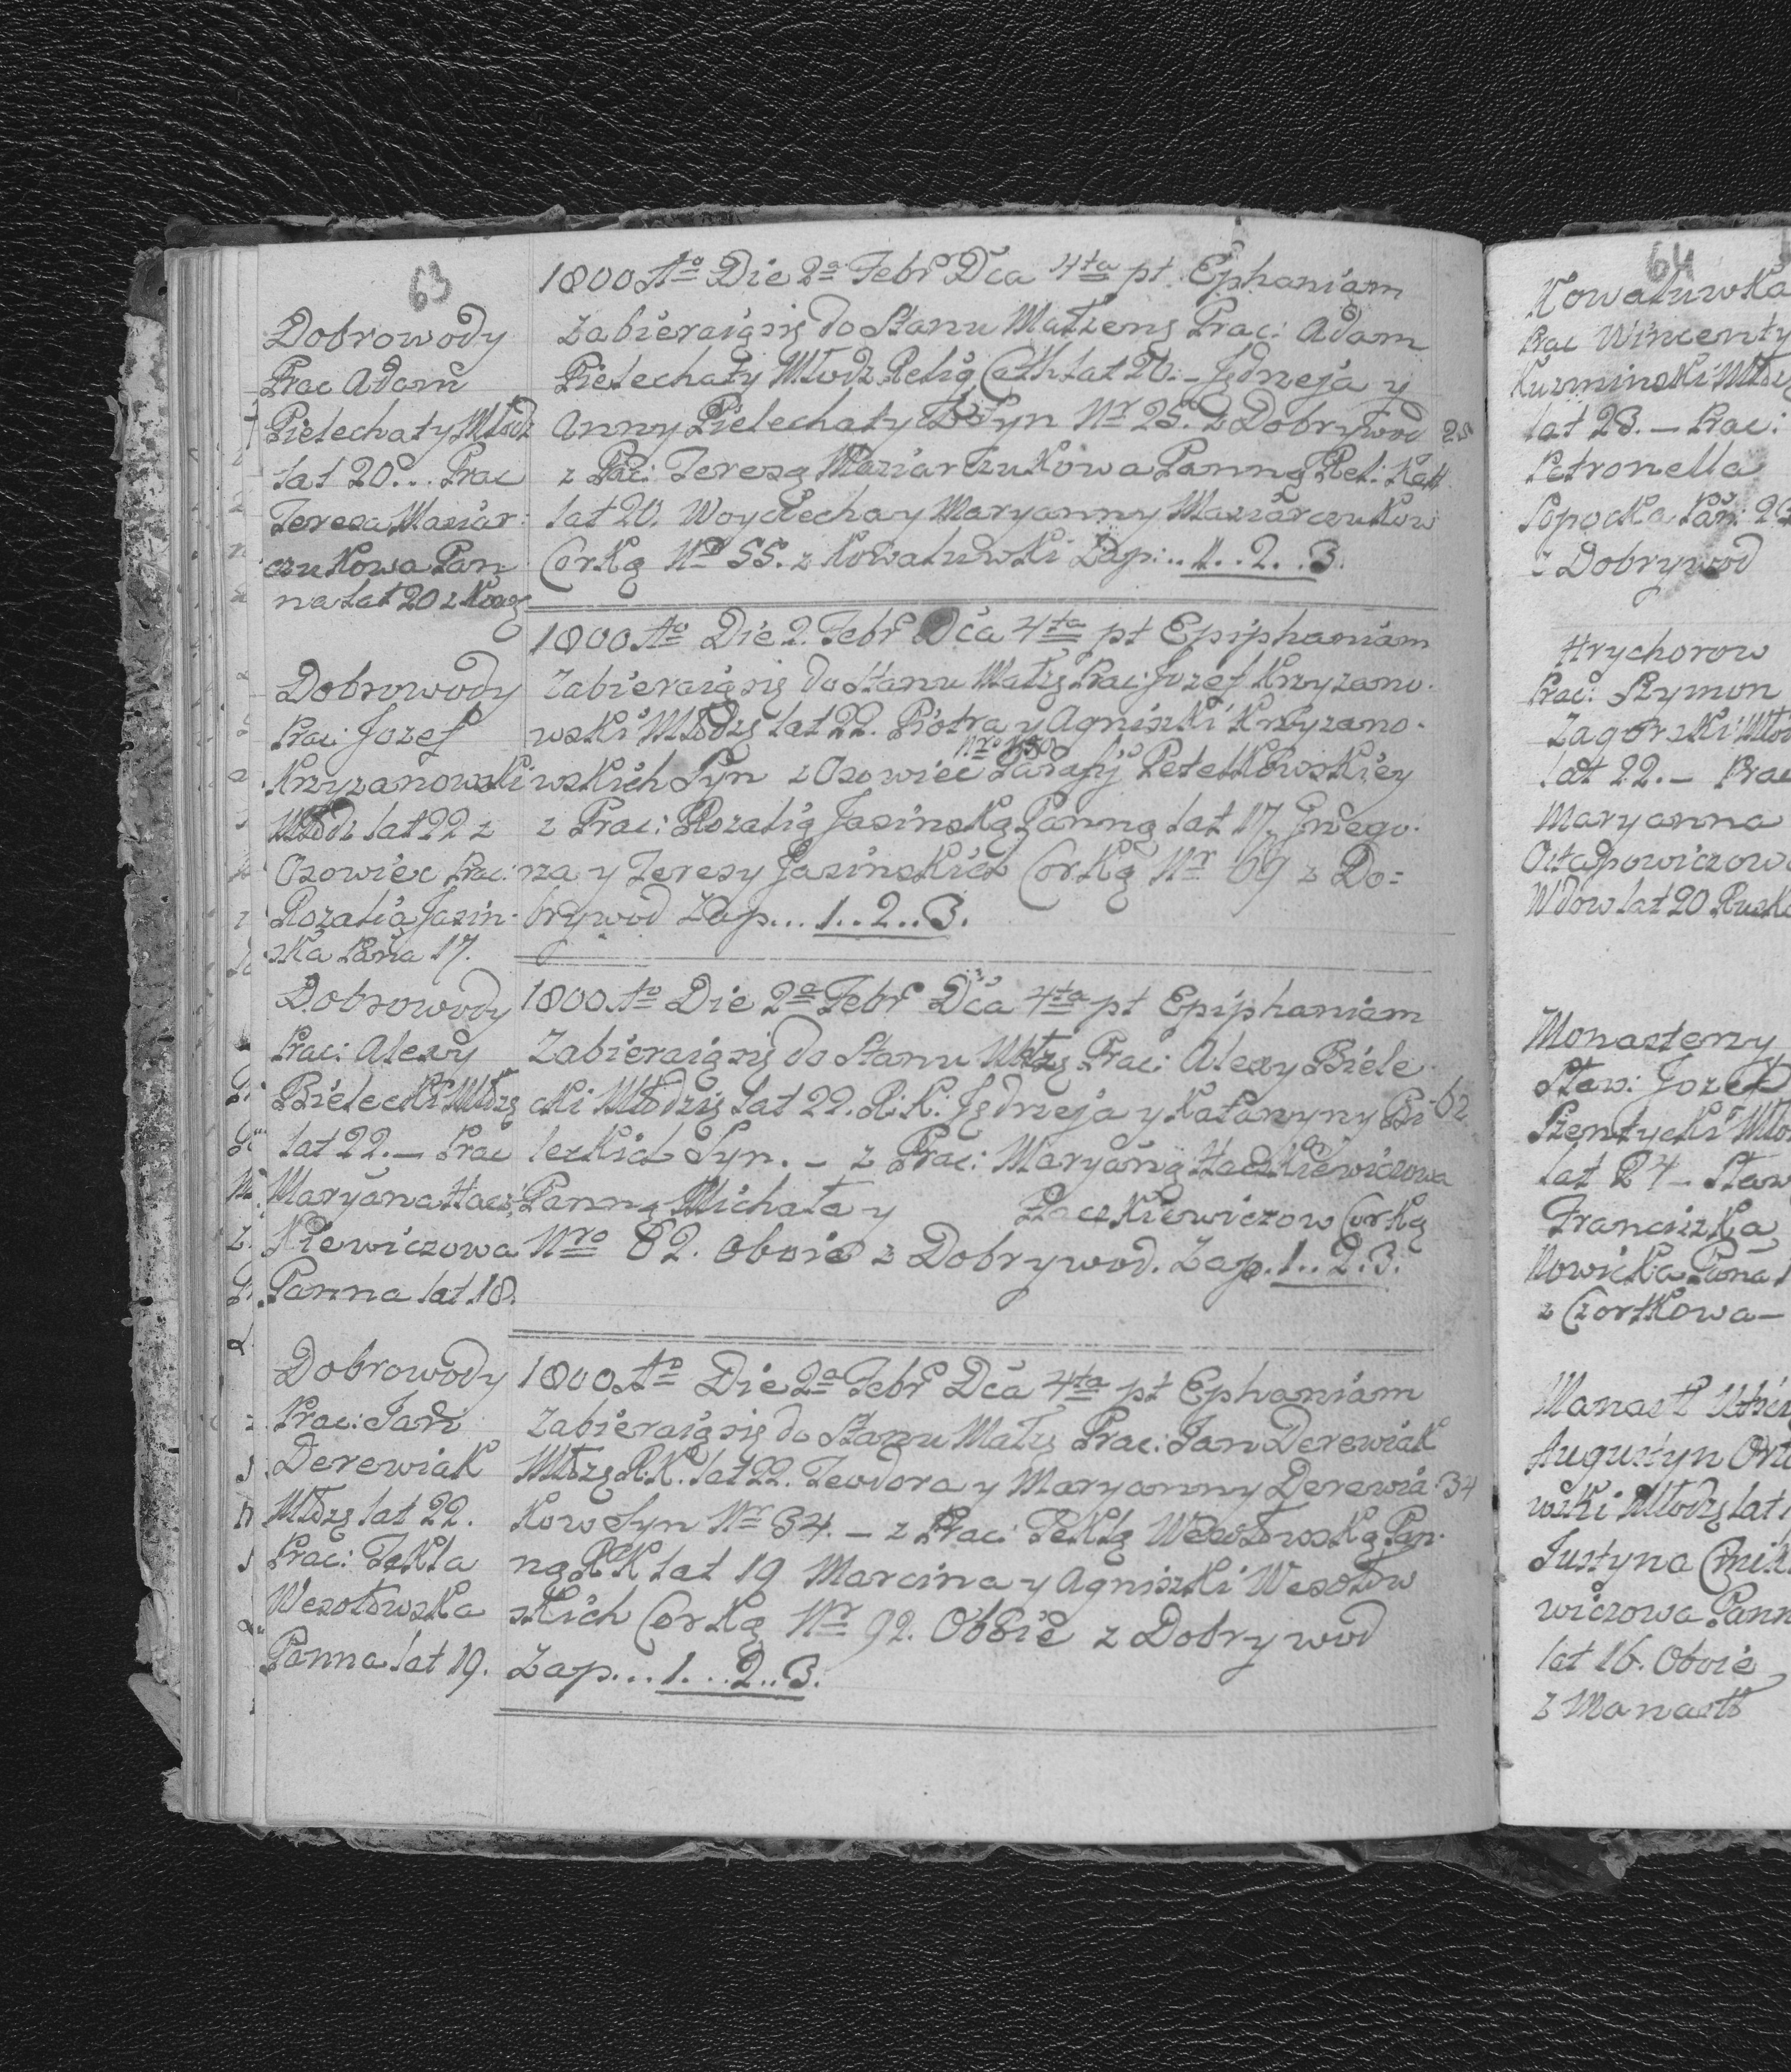 63
1800 Ao Die 2a Febr Dca 4ta pt. Ephaniam
Dobrowody
Prac Adam
Pielechaty Młodz
lat 20... Prac
Teresa Maziar:
czukowa Pan
na lat 20 z Kowa
Zabieraią się do Stanu Małzens Prac: Adam
Pielechaty Młodz Relig Cath lat 20. - Jędrzeja y
Anny Pielechaty Syn Nr 25. z Dobrywod 25
z Prac: Teresą Maziarczukowa Panną Rel: Kath
lat 20. Woyciecha y Maryanny Maziarczukow
Corką Nr 55. z Kowaluwski Zap:.. 1..2..3.
1800 Ao Die 2. Febr Dca 4ta pt Epiphaniam
Dobrowody
Prac: Jozef
Krzyzanowski
Młodz lat 22 z
Ozowiec Prac:
Rozalia Jasin-
ska Pana 17.
Zabieraią się do Stanu Małzs Prac: Jozef Krzyzano-
wski Młodzs lat 22. Piotra y Agniszki Krzyzano-
wskich Syn z Ozowiec Nro 130 Parafij Petelkowskiey
z Prac: Rozalią Jasinską Panną lat 17. Grzego-
rza y Teresy Jasinskich Corką Nr 69 z Do=
brywod Zap... 1..2..3.
Dobrowody
Prac: Alexy
Bielecki Młdzs
lat 22. - Prac
Maryana Hacz-
kiewiczowa
Panna lat 18.
1800 Ao Die 2a Febr Dca 4ta pt Epiphaniam
Zabieraią się do Stanu Młzs Prac: Alexy Biele-
cki Młodzis lat 22. R: K: Jędrzeja y Katarzyny Bi 62
leckich Syn. - z Prac: Maryaną Haczkiewiczowa
Panną Michała y Haczkiewiczow Corką
Nro 82. Oboie z Dobrywod. Zap. 1..2.3.
Dobrowody
Prac: Jan
Derewiak
Młdzs lat 22.
Prac: Tekla
Wesołowska
Panna lat 19.
1800 Ao Die 2a Febr Dca 4ta pt Ephaniam
Zabieraią się do Stanu Małzs Prac: Jan Derewiak
Młdzs R: K. lat 22. Teodora y Maryanny Derewia- 34
kow Syn Nr 34. - z Prac: Teklą Wesołowską Pan-
ną R K lat 19 Marcina y Agniszki Wesołow
skich Corką Nr 92. Oboie z Dobrywod
Zap... 1...2..3.
64
Kowaluwka
Prac Wincenty
Kuzminski Młdz
lat 23. - Prac:
Petronella
Popocka Pan:
z Dobrywod
Hrychorow
Prac: Szymon
Zagorski Młod
lat 22. - Prac
Maryanna
Ostapowiczow
Wdow lat 20
Monasterzy
Staw: Jozef
Szentycki Młod
lat 24 - Staw
Franciszka
Nowicka Pana
z Czortkowa -
Augustyn
wski Młodzs lat
Justyna
wiczowa Pann
lat 16. Oboie
z Monast